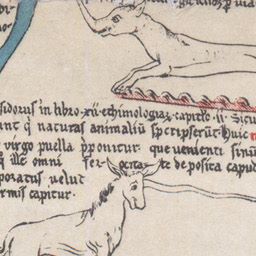 sidorus in libro xii ethimologiaꝝ capitlo ii Sicut
unt q̄ naturas animaliū sp̄ctipserūt. Huic
virgo puella p̄ponitur que venienti sinū
q̄ ille omni fer ocita te deposita capud
poratus velut
ermis capitur.